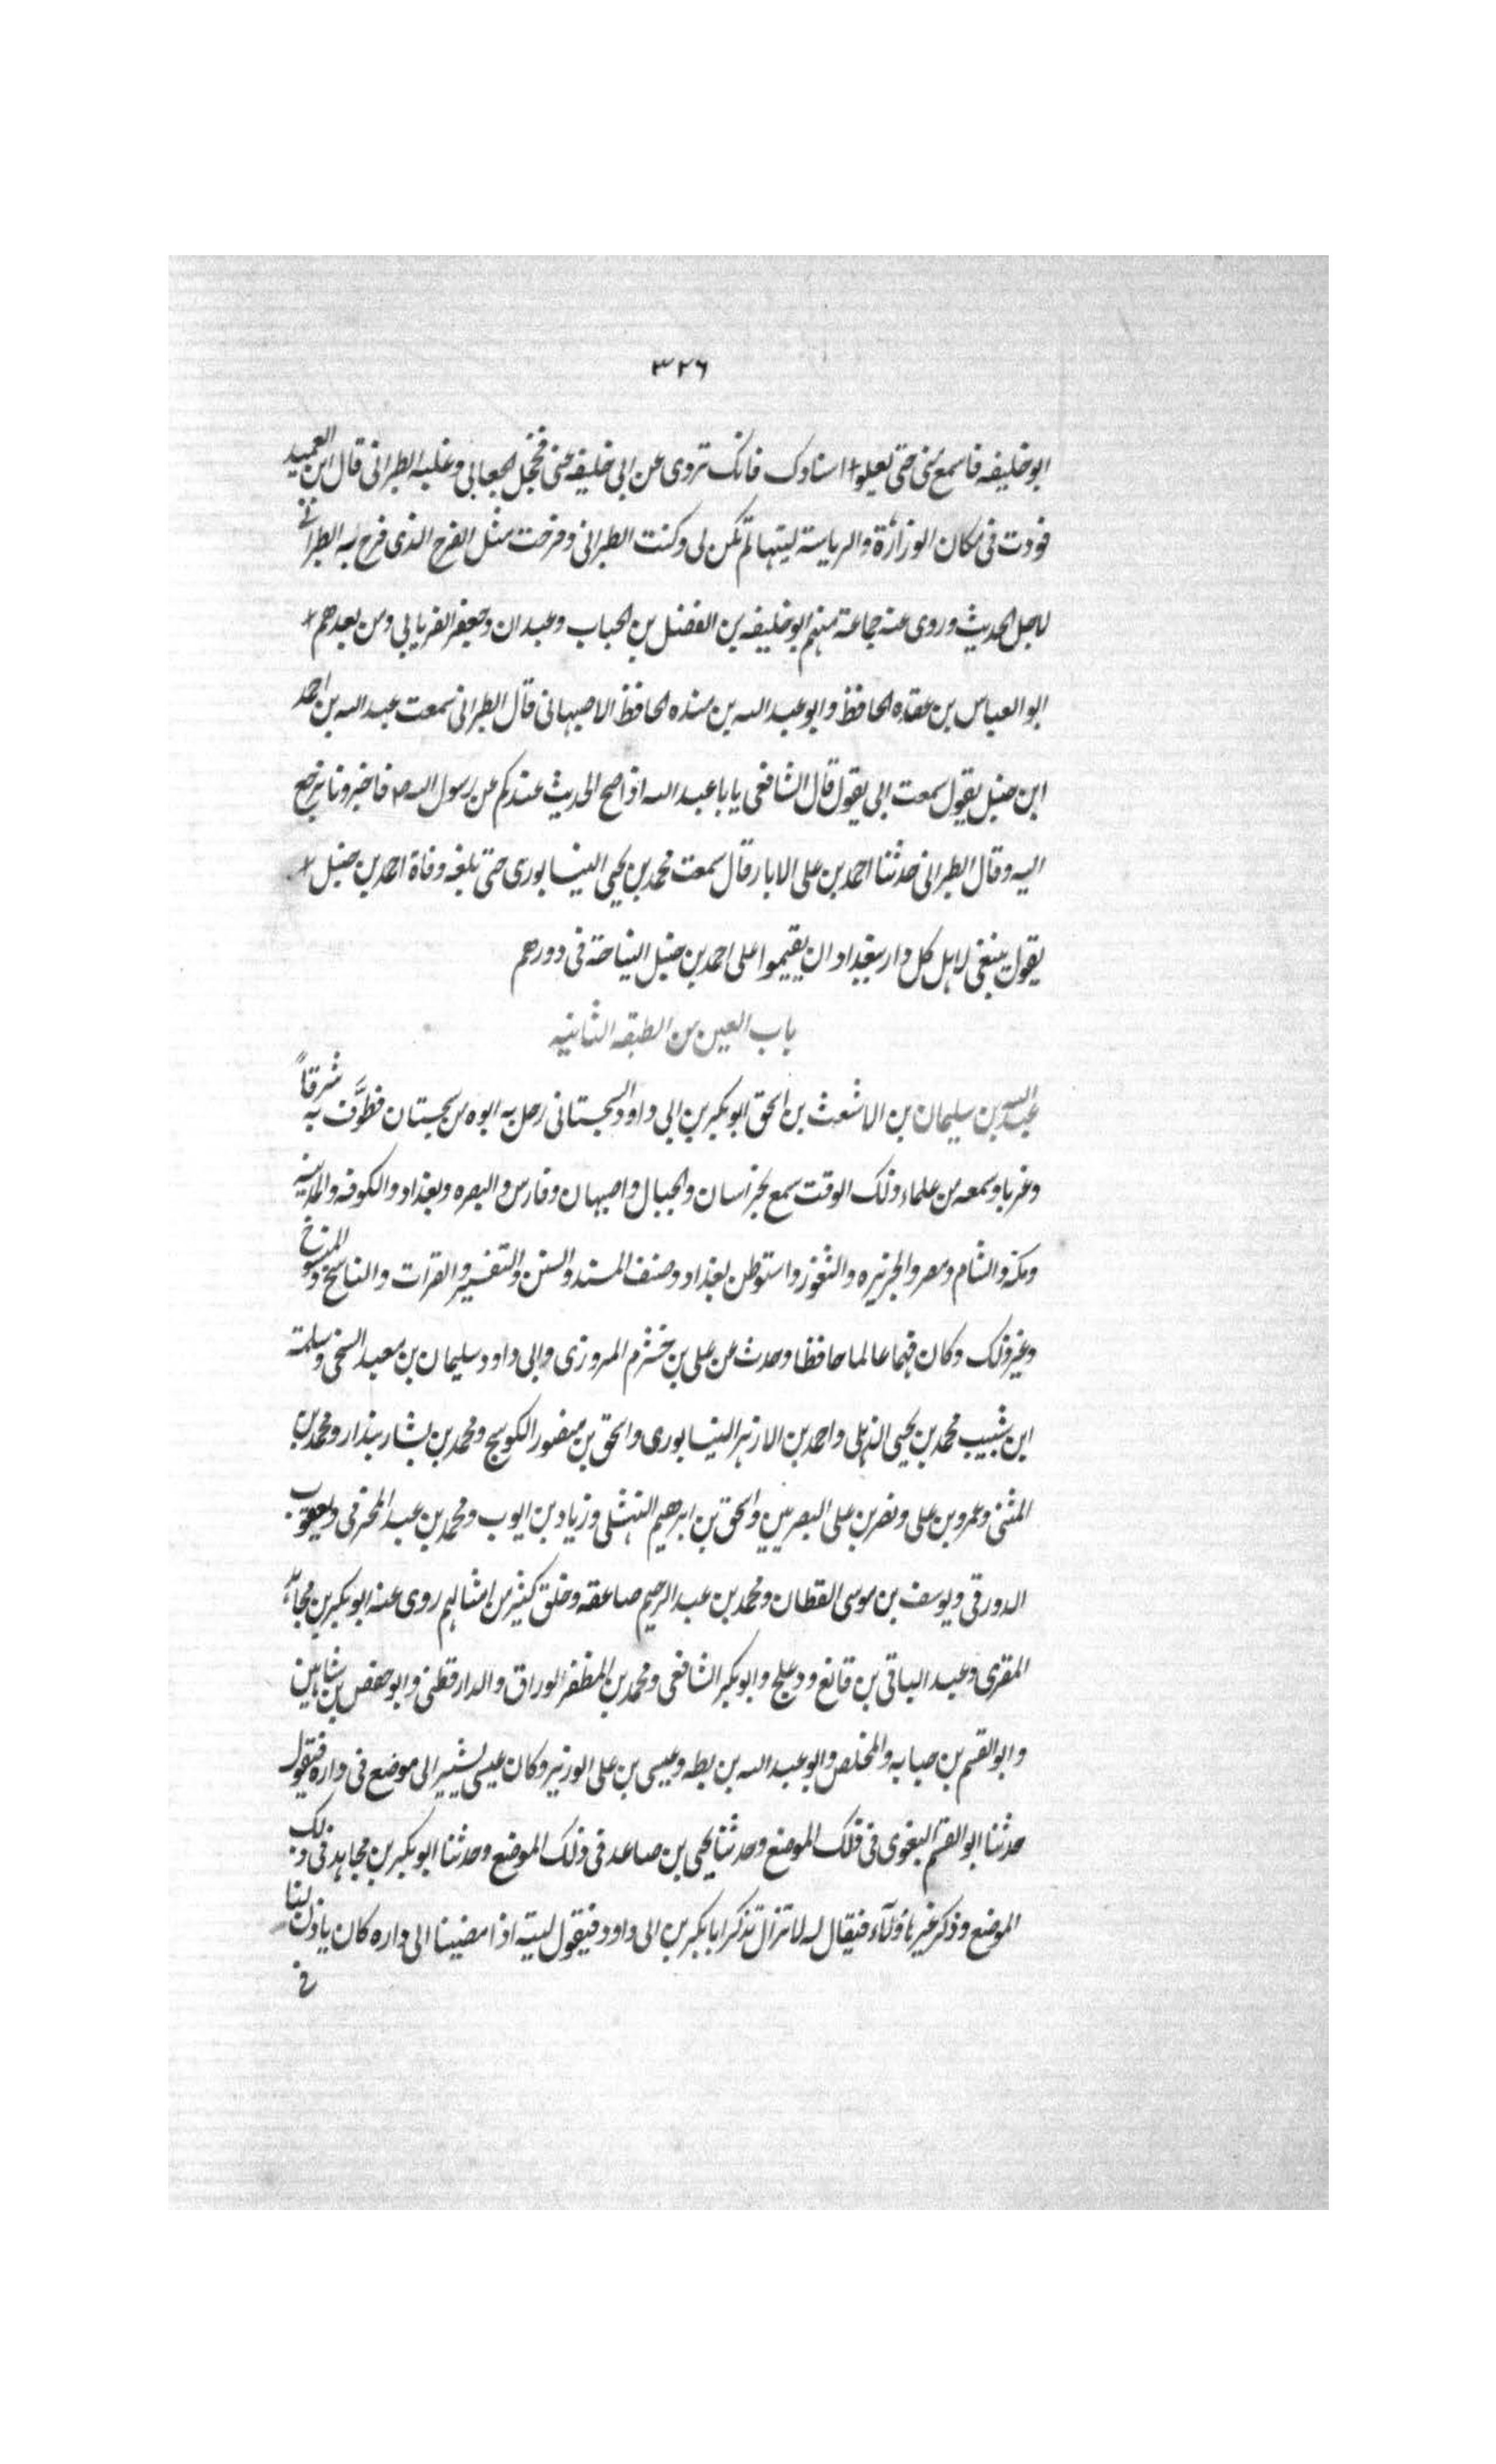 ٣٢٦
ابو خليفه فاسمع منى حتى يعلوا اسنادك فانك تروى عن ابى خليفه عنى فخجل الجعابى وغلبه الطبرانى قال ابن العميد
فوددت فى مكان الوزارة والرياسة ليتها لم تكن لى وكنت الطبرانى وفرحت مثل الفرح الذى فرح به الطبرانى
لاجل الحديث وروى عنه جماعة منهم ابو خليفه بن الفضل بن الحباب وعبدان وجعفر الفريابى ومن بعدهم
ابو العباس بن عقده الحافظ وابو عبد الله بن منده الحافظ الاصبهانى قال الطبرانى سمعت عبد الله بن احمد
ابن حنبل يقول سمعت ابى يقول قال الشافعى يابا عبد الله اذا صح الحديث عندكم عن رسول الله ص فاخبرونا نرجع
اليه وقال الطبرانى حدثنا احمد بن على الابار قال سمعت محمد بن يحيى النيسابورى حتى بلغه وفاة احمد بن حنبل
يقول ينبغى لاهل كل دار ببغداد ان يقيموا على احمد بن حنبل النياحة فى دورهم
باب العين من الطبقه الثانيه
عبد الله بن سليمان بن الاشعث بن اسحق ابو بكر بن ابى داود السجستانى رحل به ابوه من سجستان فطوَّف به شرقاً
وغربا وسمعه من علماء ذلك الوقت سمع بخراسان والجبال واصبهان وفارس والبصره وبغداد والكوفه والمدينه
ومكة والشام ومصر والجزيره والثغور واستوطن بغداد وصنف المسند والسنن والتفسير والقرات والناسخ والمنسوخ
وغير ذلك وكان فهما عالما حافظا وحدث عن على بن خشرم المروزى وابى داود سليمان بن معبد السنجى وسلمة
ابن شبيب محمد بن يحيى الذهلى واحمد بن الازهر النيسابورى واسحق بن منصور الكوسج ومحمد بن بشار بندار ومحمد بن
المثنى وعمرو بن على ونصر بن على البصريين واسحق بن ابرهيم النهشلى وزياد بن ايوب ومحمد بن عبد المخرفى ويعقوب
الدورقى ويوسف بن موسى القطان ومحمد بن عبد الرحيم صاعقه وخلق كثير من امثالهم روى عنه ابو بكر بن مجاهد
المقرى وعبد الباقى بن قانع ودعلج وابو بكر الشافعى ومحمد بن المظفر الوراق والدارقطنى وابو حفص بن شاهين
وابو القسم بن حبابه والمخلص وابو عبد الله بن بطه وعيسى بن على الوزير وكان عيسى يشير الى موضع فى داره فيقول
حدثنا ابو القسم البغوى فى ذلك الموضع وحدثنا يحيى بن صاعد فى ذلك الموضع وحدثنا ابو بكر بن مجاهد فى ذلك
الموضع وذكر غير هؤلاء فيقال له لا تزال تذكر ابا بكر بن ابى داود فيقول ليته اذا مضينا الى داره كان ياذن لنا
فى